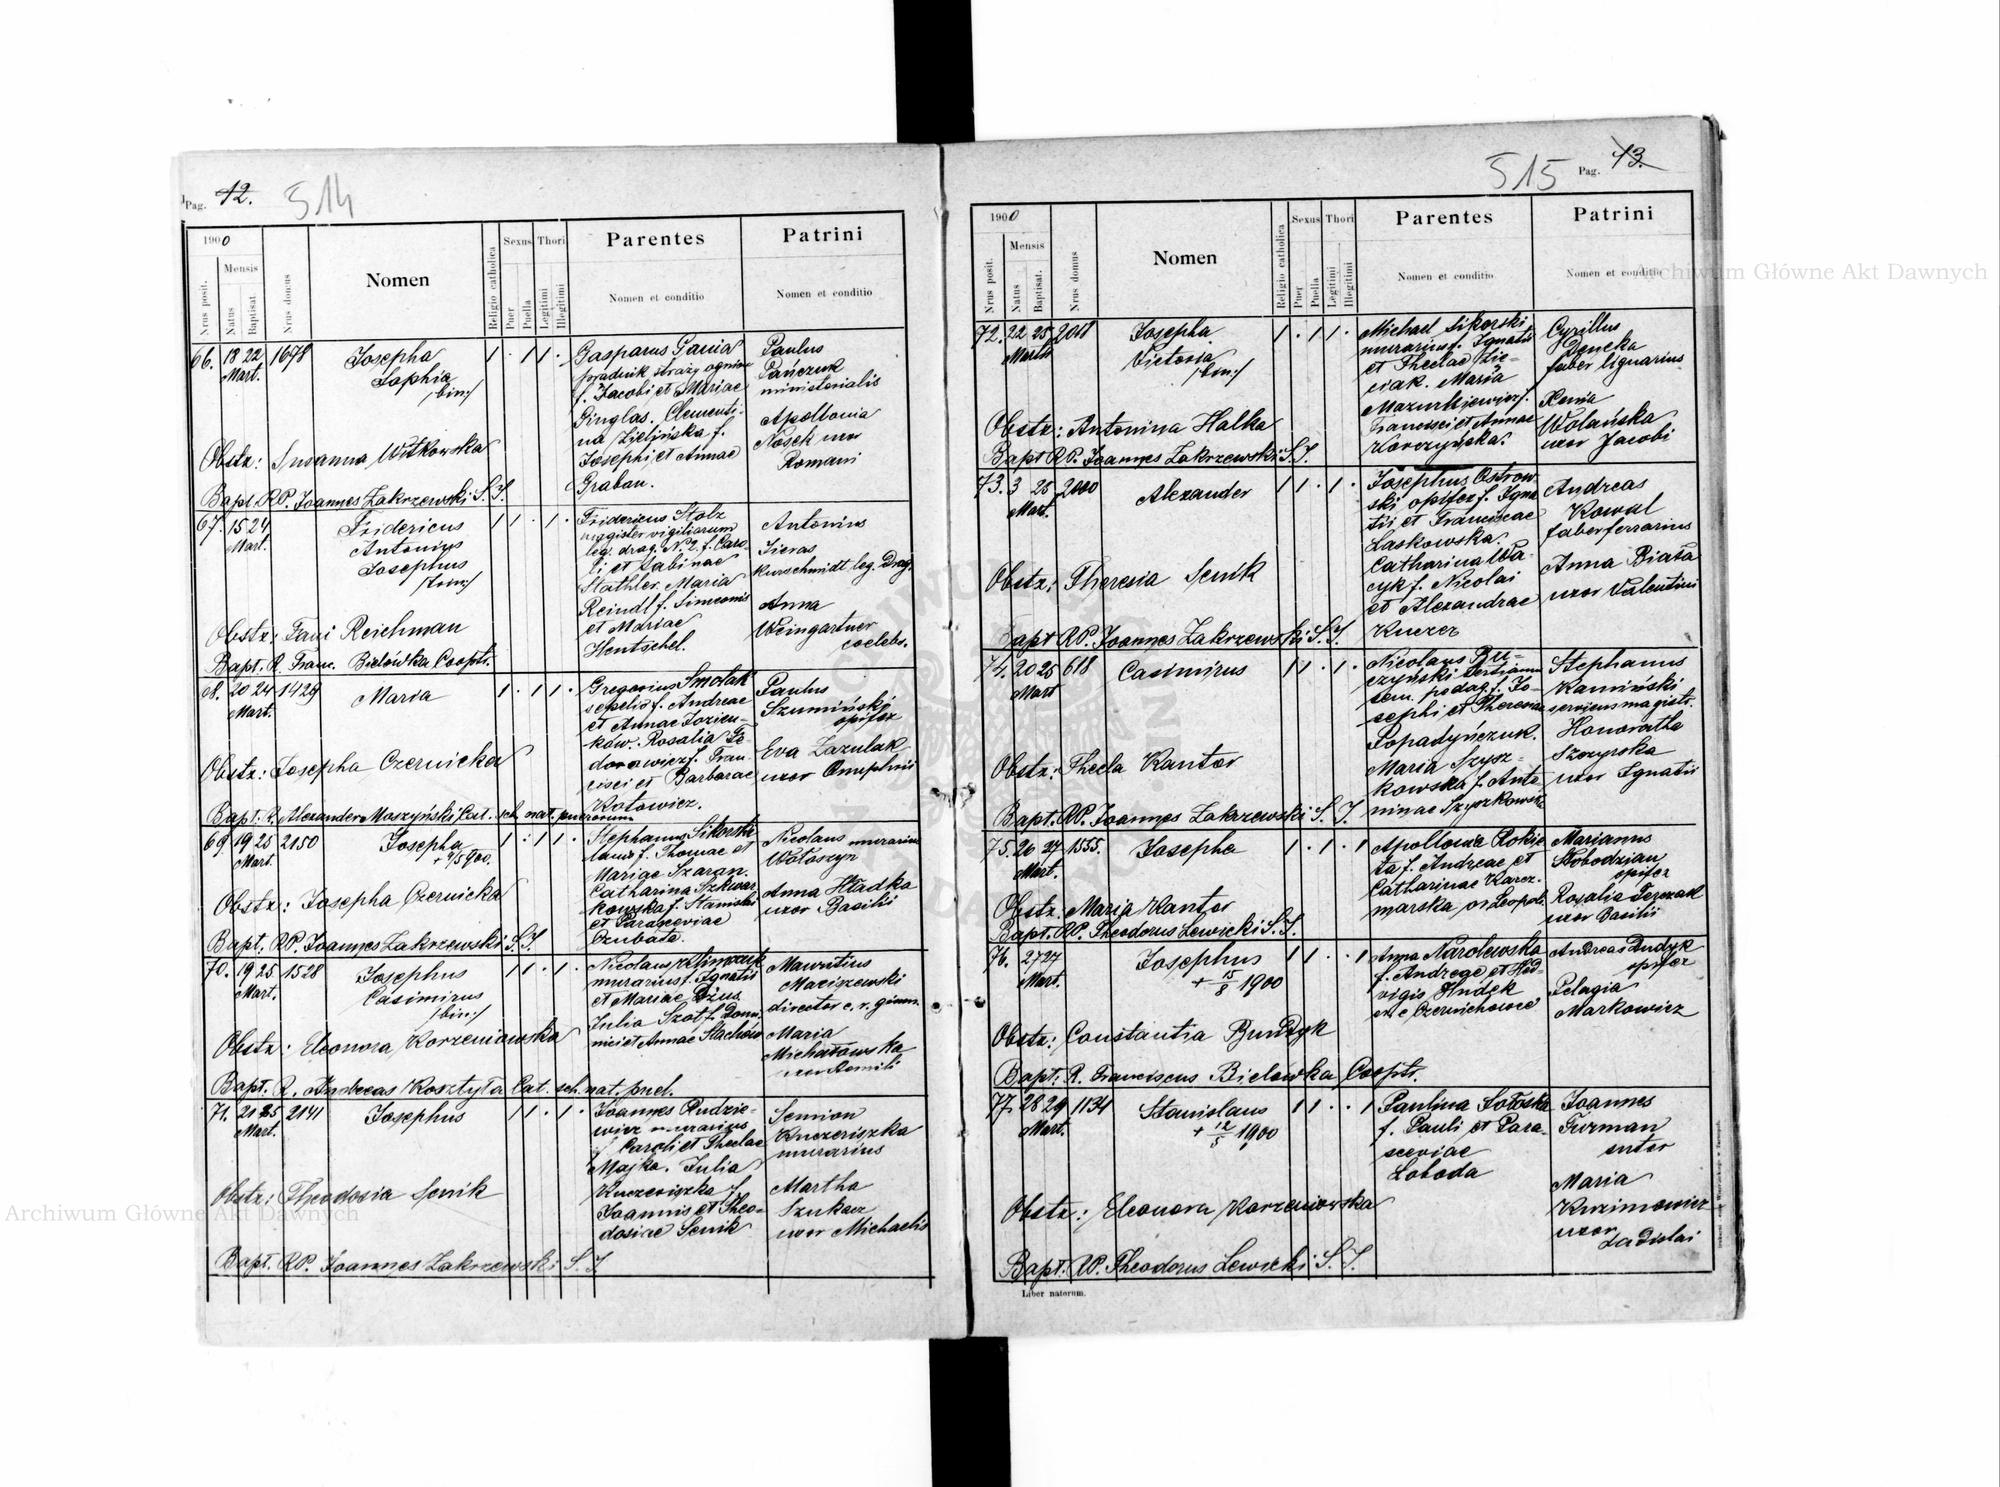 Pag. 12. 514
1900
Nrus posit.
Mensis
Natus
Baptisat.
Nrus domus
Nomen
Religio catholica
Sexus
Puer
Puella
Thori
Legitimi
Illegitimi
Parentes
Nomen et conditio
Patrini
Nomen et conditio
66. 18 22 1678
Mart.
Josepha
Sophia
/bin:/
1 · 1 1 ·
Gasparus Pania
f. Jacobi et Mariae
Ginglas. Clementi-
na Zielińska f.
Josephi et Annae
Graban.
Paulus
Pańczuk
ministerialis
Apollonia
Nosek uxor
Romani
Obstz: Susanna Witkowska
Bapt. RP. Joannes Zakrzewski S. J.
67. 15 24
Mart.
Fridericus
Antonius
Josephus
/trin:/
1 1 · 1 ·
Fridericus Stolz
magister vigiliarum
leg. drag. N. 2. f. Caro-
li et Sabinae
Stathler. Maria
Reindl f. Simeonis
et Mariae
Hentschel.
Antonius
Jieras
Kurschmidt leg. Drag.
Anna
Weingartner
coelebs.
Obstz: Fani Reichman
Bapt. R. Franc. Bielówka Cooptr.
68. 20 24 1429
Mart.
Maria
1 · 1 1 ·
Gregorius Smolak
f. Andreae
et Annae Jozien-
ków. Rosalia Fe-
dorowicz f. Fran-
cisci et Barbarae
Kotowicz.
Paulus
Szumiński
opifex
Eva Zazulak
uxor Onuphrii
Obstz: Josepha Czernicka
Bapt. R. Alexander Moszyński Cat. sch. nat. puerorum
69. 19 25 2150
Mart.
Josepha
1 · 1 1 ·
Stephanus Sikorski
f. Thomae et
Mariae Szaran.
Catharina Szkwar
kowska f. Stanislai
et Parasceviae
Czubata.
Nicolaus murarius
Wołoszyn
Anna Hładka
uxor Basilii
Obstz: Josepha Czernicka
Bapt. RP. Joannes Zakrzewski S. J.
70. 19 25 1528
Mart.
Josephus
Casimirus
/bin:/
1 1 · 1 ·
murarius f. Ignatii
et Mariae Dżus.
Julia Szot f. Domi-
nici et Annae Stachów
Mauritius
Maciszewski
director c. r. gimn.
Maria
Michałowska
uxor Aemili
Obstz: Eleonora Korzeniowska
Bapt. R. Andreas Kosztyła Cat. sch. nat. puel.
71. 21 25 2141
Mart.
Josephus
1 1 · 1 ·
Joannes Rudzie-
wicz murarius
f. Caroli et Theclae
Majka. Julia
Kuczeriszka f.
Joannis et Theo-
dosiae Senik
Semion
Kuczeriszka
murarius
Martha
Szukacz
uxor Michaelis
Obstz: Theodosia Senik
Bapt. RP. Joannes Zakrzewski S. J
515 Pag. 13.
1900
Nrus posit.
Mensis
Natus
Baptisat.
Nrus domus
Nomen
Religio catholica
Sexus
Puer
Puella
Thori
Legitimi
Illegitimi
Parentes
Nomen et conditio
Patrini
Nomen et conditio
72. 22 25 2018
Martii
Josepha
Victoria
/bin:/
1 · 1 1 ·
Michael Sikorski
murarius f. Ignatii
et Theclae Zie-
ciak. Maria
Mazurkiewicz f.
Francisci et Annae
Korczyńska.
Cyrillus
Dencka
faber lignarius
Xenia
Wolańska
uxor Jacobi
Obstz: Antonina Halka
Bapt RP. Joannes Zakrzewski S. J.
73. 3 25 2000
Mart.
Alexander
1 1 · 1 ·
Josephus Ostrow-
ski opifex f. Igna
tii et Franciscae
Laskowska.
Catharina Wa-
cyk f. Nicolai
et Alexandrae
Kuczer
Andreas
Kowal
faber ferrarius
Anna Biała
uxor Valentini
Obstz: Theresia Senik
Bapt RP. Joannes Zakrzewski S. J.
74. 20 25 618
Mart
Casimirus
1 1 · 1 ·
Nicolaus Bu-
czyński
f. Jo-
sephi et Theresiae
Popadyńczuk.
Maria Szysz-
kowska f. Anto
ninae Szyszkowska
Stephanus
Kamiński
serviens magistr.
Honoratha
Szczyrska
uxor Ignatii
Obstz: Thecla Kantor
Bapt. RP. Joannes Zakrzewski S. J.
75. 26 27 1555.
Mart.
Josepha
1 · 1 · 1
Apollonia Rokie
ta f. Andreae et
Catharinae Karcz-
marska
Marianus
Słobodzian
opifex
Rosalia
uxor Basilii
Obstz. Maria Kantor
Bapt. RP. Theodorus Lewicki S. J.
76. 27 27
Mart.
Josephus
+ 15/8 1900
1 1 · · 1
Anna Narolewska
f. Andreae et Hed-
vigis Hudek
Andreas Dudyk
opifex
Pelagia
Markowicz
Obstz: Constantia Bundzyk
Bapt: R. Franciscus Bielowka Cooptr.
77. 28 29 1134
Mart.
Stanislaus
+ 12/5 1900
1 1 · · 1
Paulina Sołoska
f. Pauli et Para-
sceviae
Loboda
Joannes
Furman
sutor
Maria
Kuzimowicz
uxor
Ladislai
Obstz: Eleonora Korzeniowska
Bapt. RP. Theodorus Lewicki S. J.
Liber natorum.
Archiwum Główne Akt Dawnych
Archiwum Główne Akt Dawnych